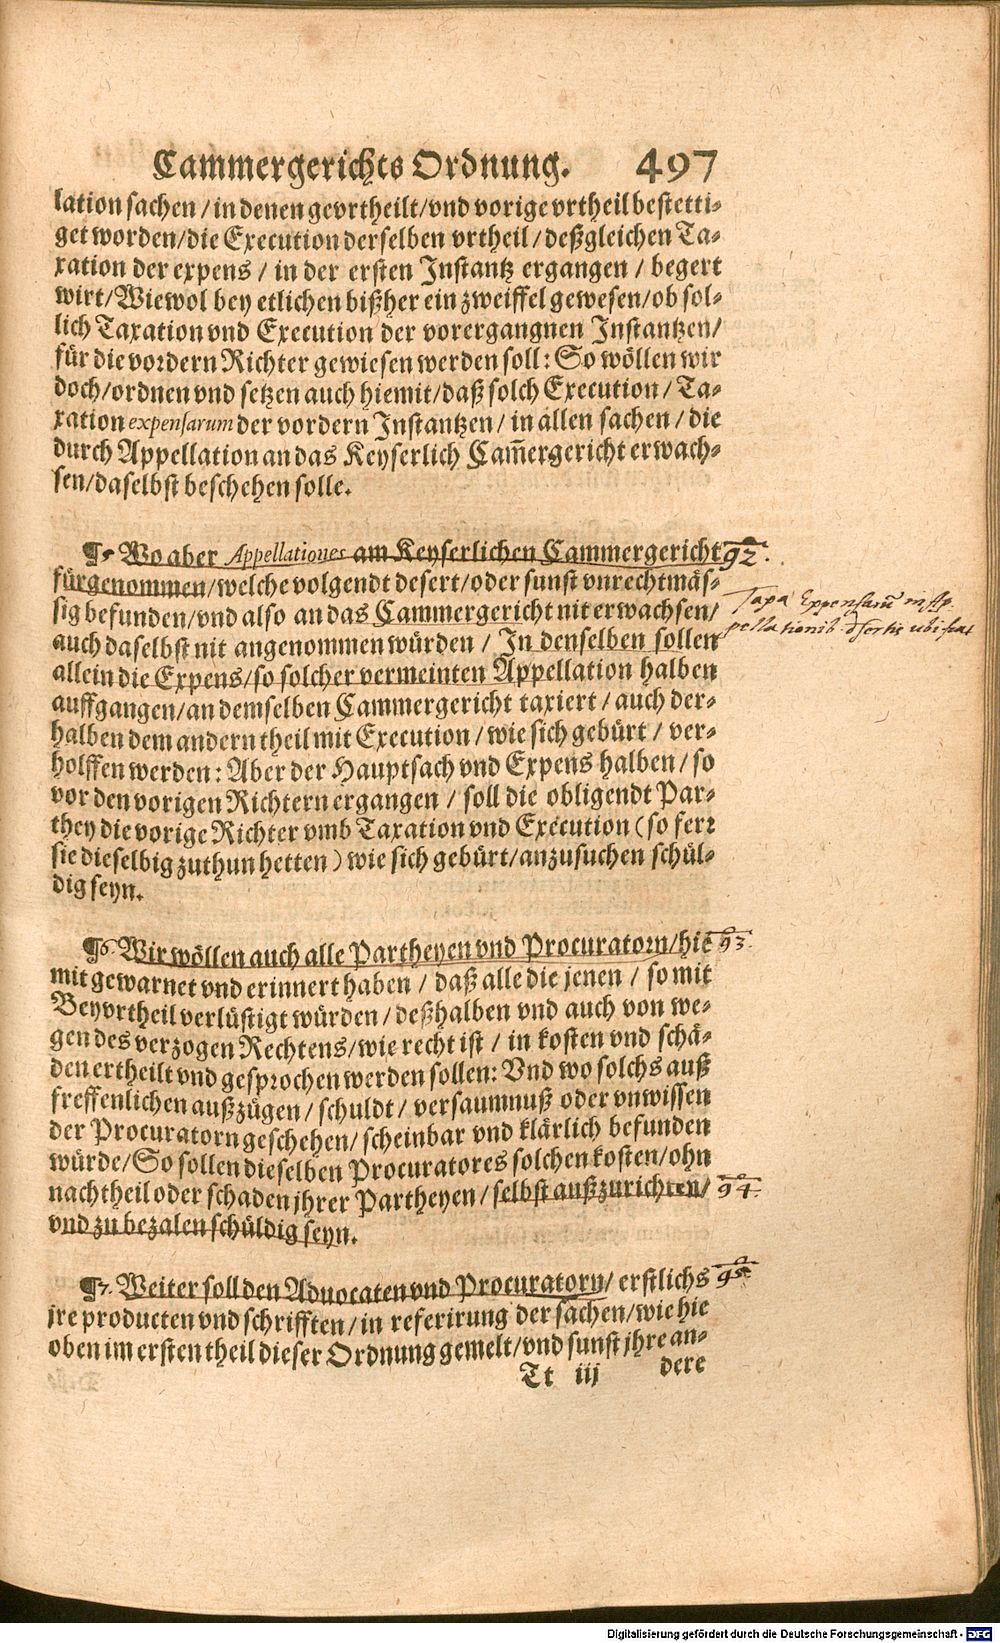 Cammergerichts Ordnung. 497
lation sachen / in denen gevrtheilt / vnd vorige vrtheil bestetti-
get worden / die Execution derselben vrtheil / deßgleichen Ta-
xation der expens / in der ersten Instantz ergangen / begert
wirt / Wiewol bey etlichen bißher ein zweiffel gewesen / ob sol-
lich Taxation vnd Execution der vorergangnen Instantzen /
für die vordern Richter gewiesen werden soll: So wöllen wir
doch / ordnen vnd setzen auch hiemit / daß solch Execution / Ta-
xation expensarum der vordern Instantzen / in allen sachen / die
durch Appellation an das Keyserlich Cam̃ergericht erwach-
sen / daselbst beschehen solle.
¶ Wo aber Appellationes am Keyserlichen Cammergericht 92.
fürgenommen / welche volgendt desert / oder sunst vnrechtmäs-
sig befunden / vnd also an das Cammergericht nit erwachsen /
auch daselbst nit angenommen würden / In denselben sollen
allein die Expens / so solcher vermeinten Appellation halben
auffgangen / an demselben Cammergericht taxiert / auch der-
halben dem andern theil mit Execution / wie sich gebürt / ver-
holffen werden: Aber der Hauptsach vnd Expens halben / so
vor den vorigen Richtern ergangen / soll die obligendt Par-
they die vorige Richter vmb Taxation vnd Execution (so ferr
sie dieselbig zuthun hetten) wie sich gebürt / anzusuchen schül-
dig seyn.
Expensarũ in Ap-
pellationib. dsertis ubi
¶ 6. Wir wöllen auch alle Partheyen vnd Procuratorn / hie 93.
mit gewarnet vnd erinnert haben / daß alle die jenen / so mit
Beyvrtheil verlüstigt würden / deßhalben vnd auch von we-
gen des verzogen Rechtens / wie recht ist / in kosten vnd schä-
den ertheilt vnd gesprochen werden sollen: Vnd wo solchs auß
freffenlichen außzügen / schuldt / versaumnuß oder vnwissen
der Procuratorn geschehen / scheinbar vnd klärlich befunden
würde / So sollen dieselben Procuratores solchen kosten / ohn
nachtheil oder schaden jhrer Partheyen / selbst außzurichten / 94.
vnd zu bezalen schüldig seyn.
¶ 7. Weiter soll den Aduocaten vnd Procuratorn / erstlichs 95.
jre producten vnd schrifften / in referirung der sachen / wie hie
oben im ersten theil dieser Ordnung gemelt / vnd sunst jhre an-
Tt iij dere
Digitalisierung gefördert durch die Deutsche Forschungsgemeinschaft - DFG